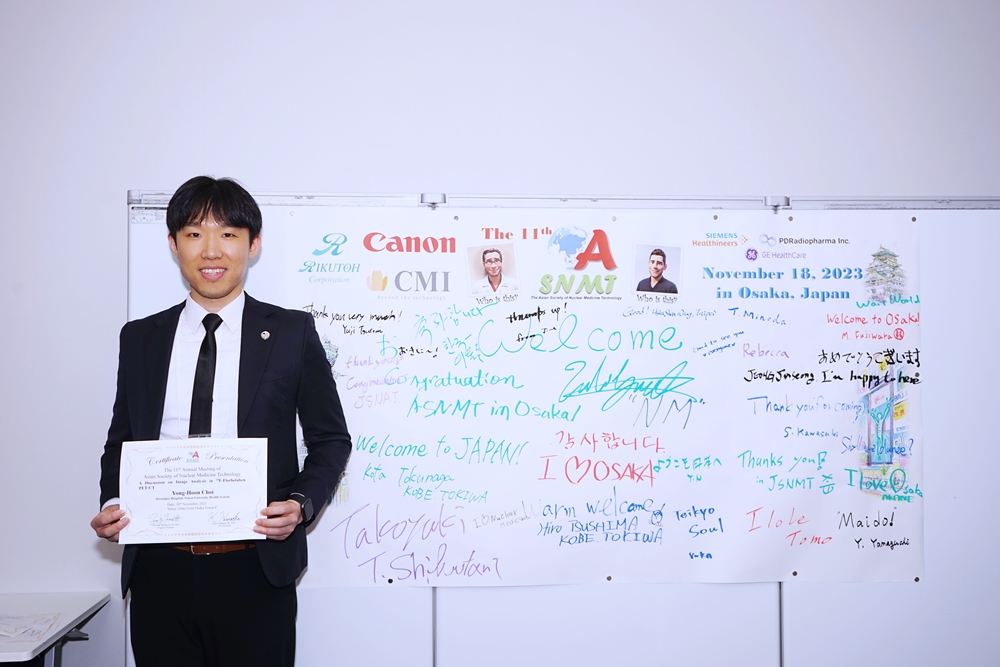 R
RIKUTOH
Corporation
Canon
CMI
Beyond the technology
The 11th
A
SNMT
The Asian Society of Nuclear Medicine Technology
Who is this?
Who is this?
SIEMENS
Healthineers
PDRadiopharma Inc.
GE HealthCare
November 18, 2023
in Osaka, Japan
Thank you very much!
Yuji Tsutsui
thumbs up!
Welcome
T. Minoda
Want World
Welcome to Osaka!
M. Fujiwara
Rebecca
おめでとうございます
Jeong Jinseong I'm happy to here
Congratuation
ASNMT in Osaka!
"NM"
JSNMT
Thank you! for coming!
S. Kawasaki
Welcome to JAPAN!
Kota Tokunaga
KOBE TOKIWA
감사합니다
I ♡ OSAKA
ようこそ日本へ
Thanks you!
in JSNMT
I love Osaka
Warm welcome
Hiro TSUSHIMA
KOBE TOKIWA
Teikyo
Soul
Takoyaki
T. Shibutani
"Maido!"
Y. Yamaguchi
Certificate Presentation
The 11th Annual Meeting of
Asian Society of Nuclear Medicine Technology
A Discussion on Image Analysis in 18F-Florbetaben
PET/CT
Yong-Hoon Choi